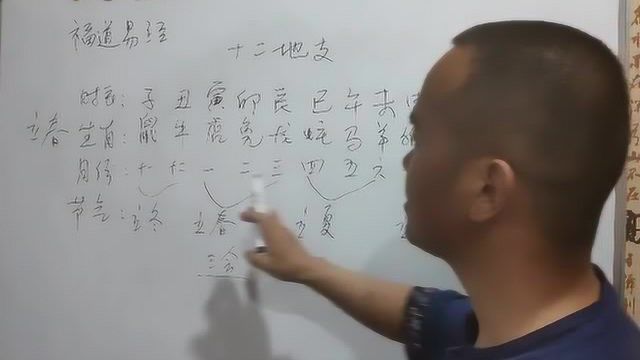 福道易经
十二地支
时辰：子 丑 寅 卯 辰 巳 午 未
立春 生肖：鼠 牛 虎 兔 龙 蛇 马 羊
月份：十一 十二 一 二 三 四 五 六
节气：立冬 立春 立夏
三会